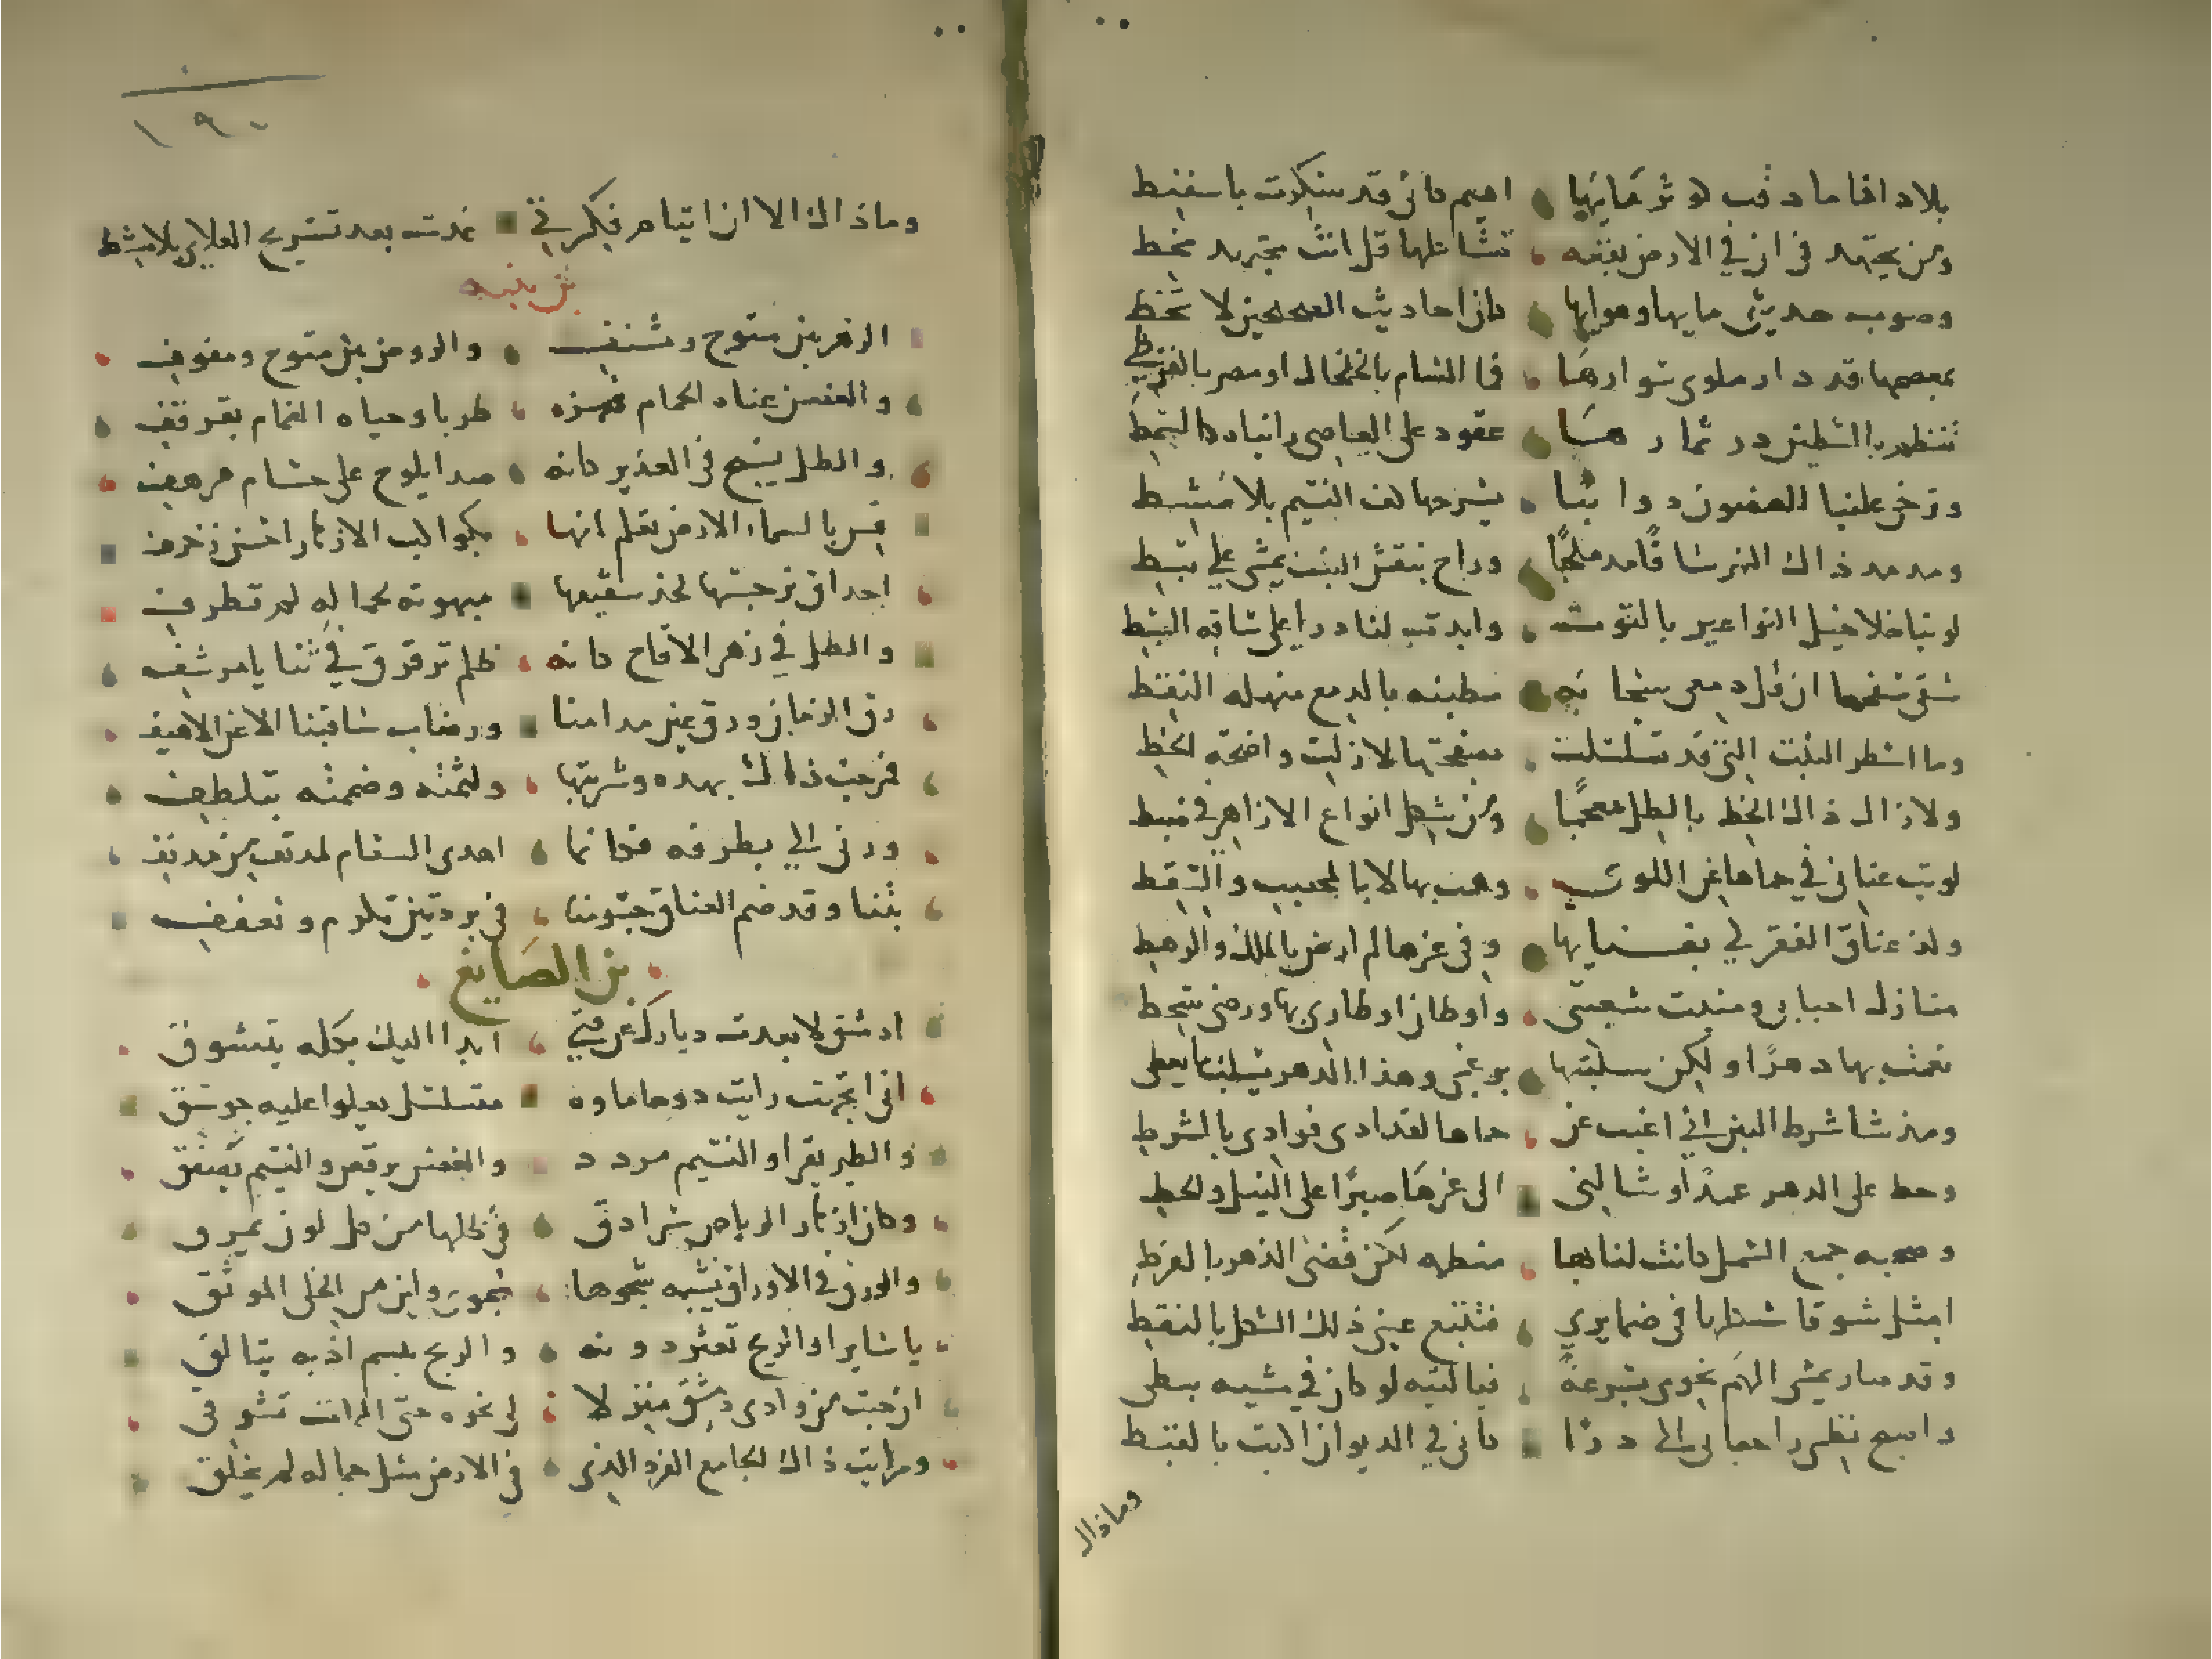 بلاد اذا ما دقت كوثر مائها اهيم كاني قد سكرت باسفنط
ومن يجتهد في ان في الارض بقعة تشاكلها قل انت مجتهد مخط
وصوب حديثي مايها وهوايها فان احاديث الصحيحين لا تخط
بمعصمها قد دار ملوى سوارها فما الشام بالخلخال او مصر بالقرط
تنظم بالشطين در ثمارها عقود على العاصي
وترخي علينا الغصون ذوايبا يسرحها كف النسيم بلا مشط
ومد مد ذاك النهر ساقا مدملجا وراح بنقش النبت يمشي على بسط
لوينا خلاخيل النواعير بالتوت وابدت لنا دورا على ساقه السبط
سقى سفحها ان قل دمعي سحابة مطنبة بالدمع منهلة النقط
وما اسطر النبت التي قد تسلسلت بصفحتها لازلت واضحة الخط
ولازال ذاك الخط بالطل معجما ومن شكل انواع الازاهر في ضبط
لويت عناني في حماها عن اللوى وهمت بها لا بالمحصب والسقط
ولذ عناق الفقر لي بفنايها وفي غيرها لم ارض بالملك والرهط
منازل احبابي ومنبت شعبتي واوطان اوطاري بها ورضى سخط
نعمت بها دهرا ولكن سلبتها برغمي وهذا الدهر يسلب ما يعطي
ومذ شا شرط البين اني اغيب عن حماها لقد ادى فوادي بالشرط
وحط على الدهر عمدا وشالني الى غيرها صبرا على الشيل والحط
وصحبه جمع الشمل كانت لنا بها منظمه لكن قضى الدهر بالفرط
امثل شوقا شكلها في ضمايري فتتبع عيني ذلك الشكل بالنقط
وقد صار يمشي الهم نحوي بسرعة فيا ليته لو كان في مشيه يبطي
كاني في الديوان اكتب بالقبط
وماذاك
١٩٠
وماذاك الا ان ايتام فكرتي غدت بعد تسريح العلاي بلا مشط
بن بنيه
الزهر بين متوج ومشنف والروض بين متوج ومفوف
والغصن غناه الحمام فهزه طربا وحياه الغمام بقرقف
والظل يسبح في الغدير كانه صدا يلوح على حسام مرهف
قس بالسماء الارض تعلم انها بكواكب الازهار احسن زخرف
احداق نرجسها لخد شقيقها مبهوته لجماله لم تطرف
والطل في زهر الاقاح كانه ظلم ترقرق في ثنايا مرشف
رق الزمان ورق عين مدامنا ورضاب ساقينا الاغن الاهيف
فمزجت ذلك بهذه وشربتها ولثمته وضممته بتلطف
ورنى الي بطرفه فكانما اهدى السقام لمدنف من مدنف
بتنا وقد ضم العناق جسومنا في بردتين تكرم وتعفف
بن الصايغ
ادمشق لا بعدت ديارك عن فتى ابدا اليك بكله يتشوق
انى اتجهت رايت دوحا ماوه متسلسل يعلوا عليه جوسق
والطير يقرا والنسيم مردد والغصن يرقص والنسيم يصفق
وكان ازهار الرياض سرادق في ظلها من كل لون نمرق
والورق في الاوراق يشبه شجوها شجوي واين هي الخلي الموثق
يا سايرا والريح تعثر دونه والبرق يبسم اذ به يتالق
ان جيت من وادي دمشق منزلا لي نحوه حتى الممات تشوق
ورايت ذاك الجامع الفرد الذي في الارض مثل جماله لم يخلق